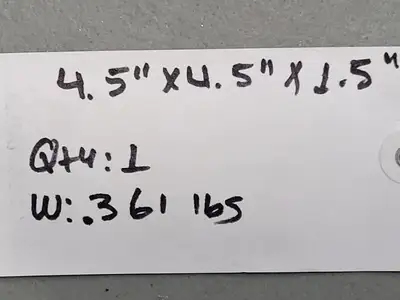 4.5" X 4.5" X 1.5"
Qty: 1
W: .361 lbs